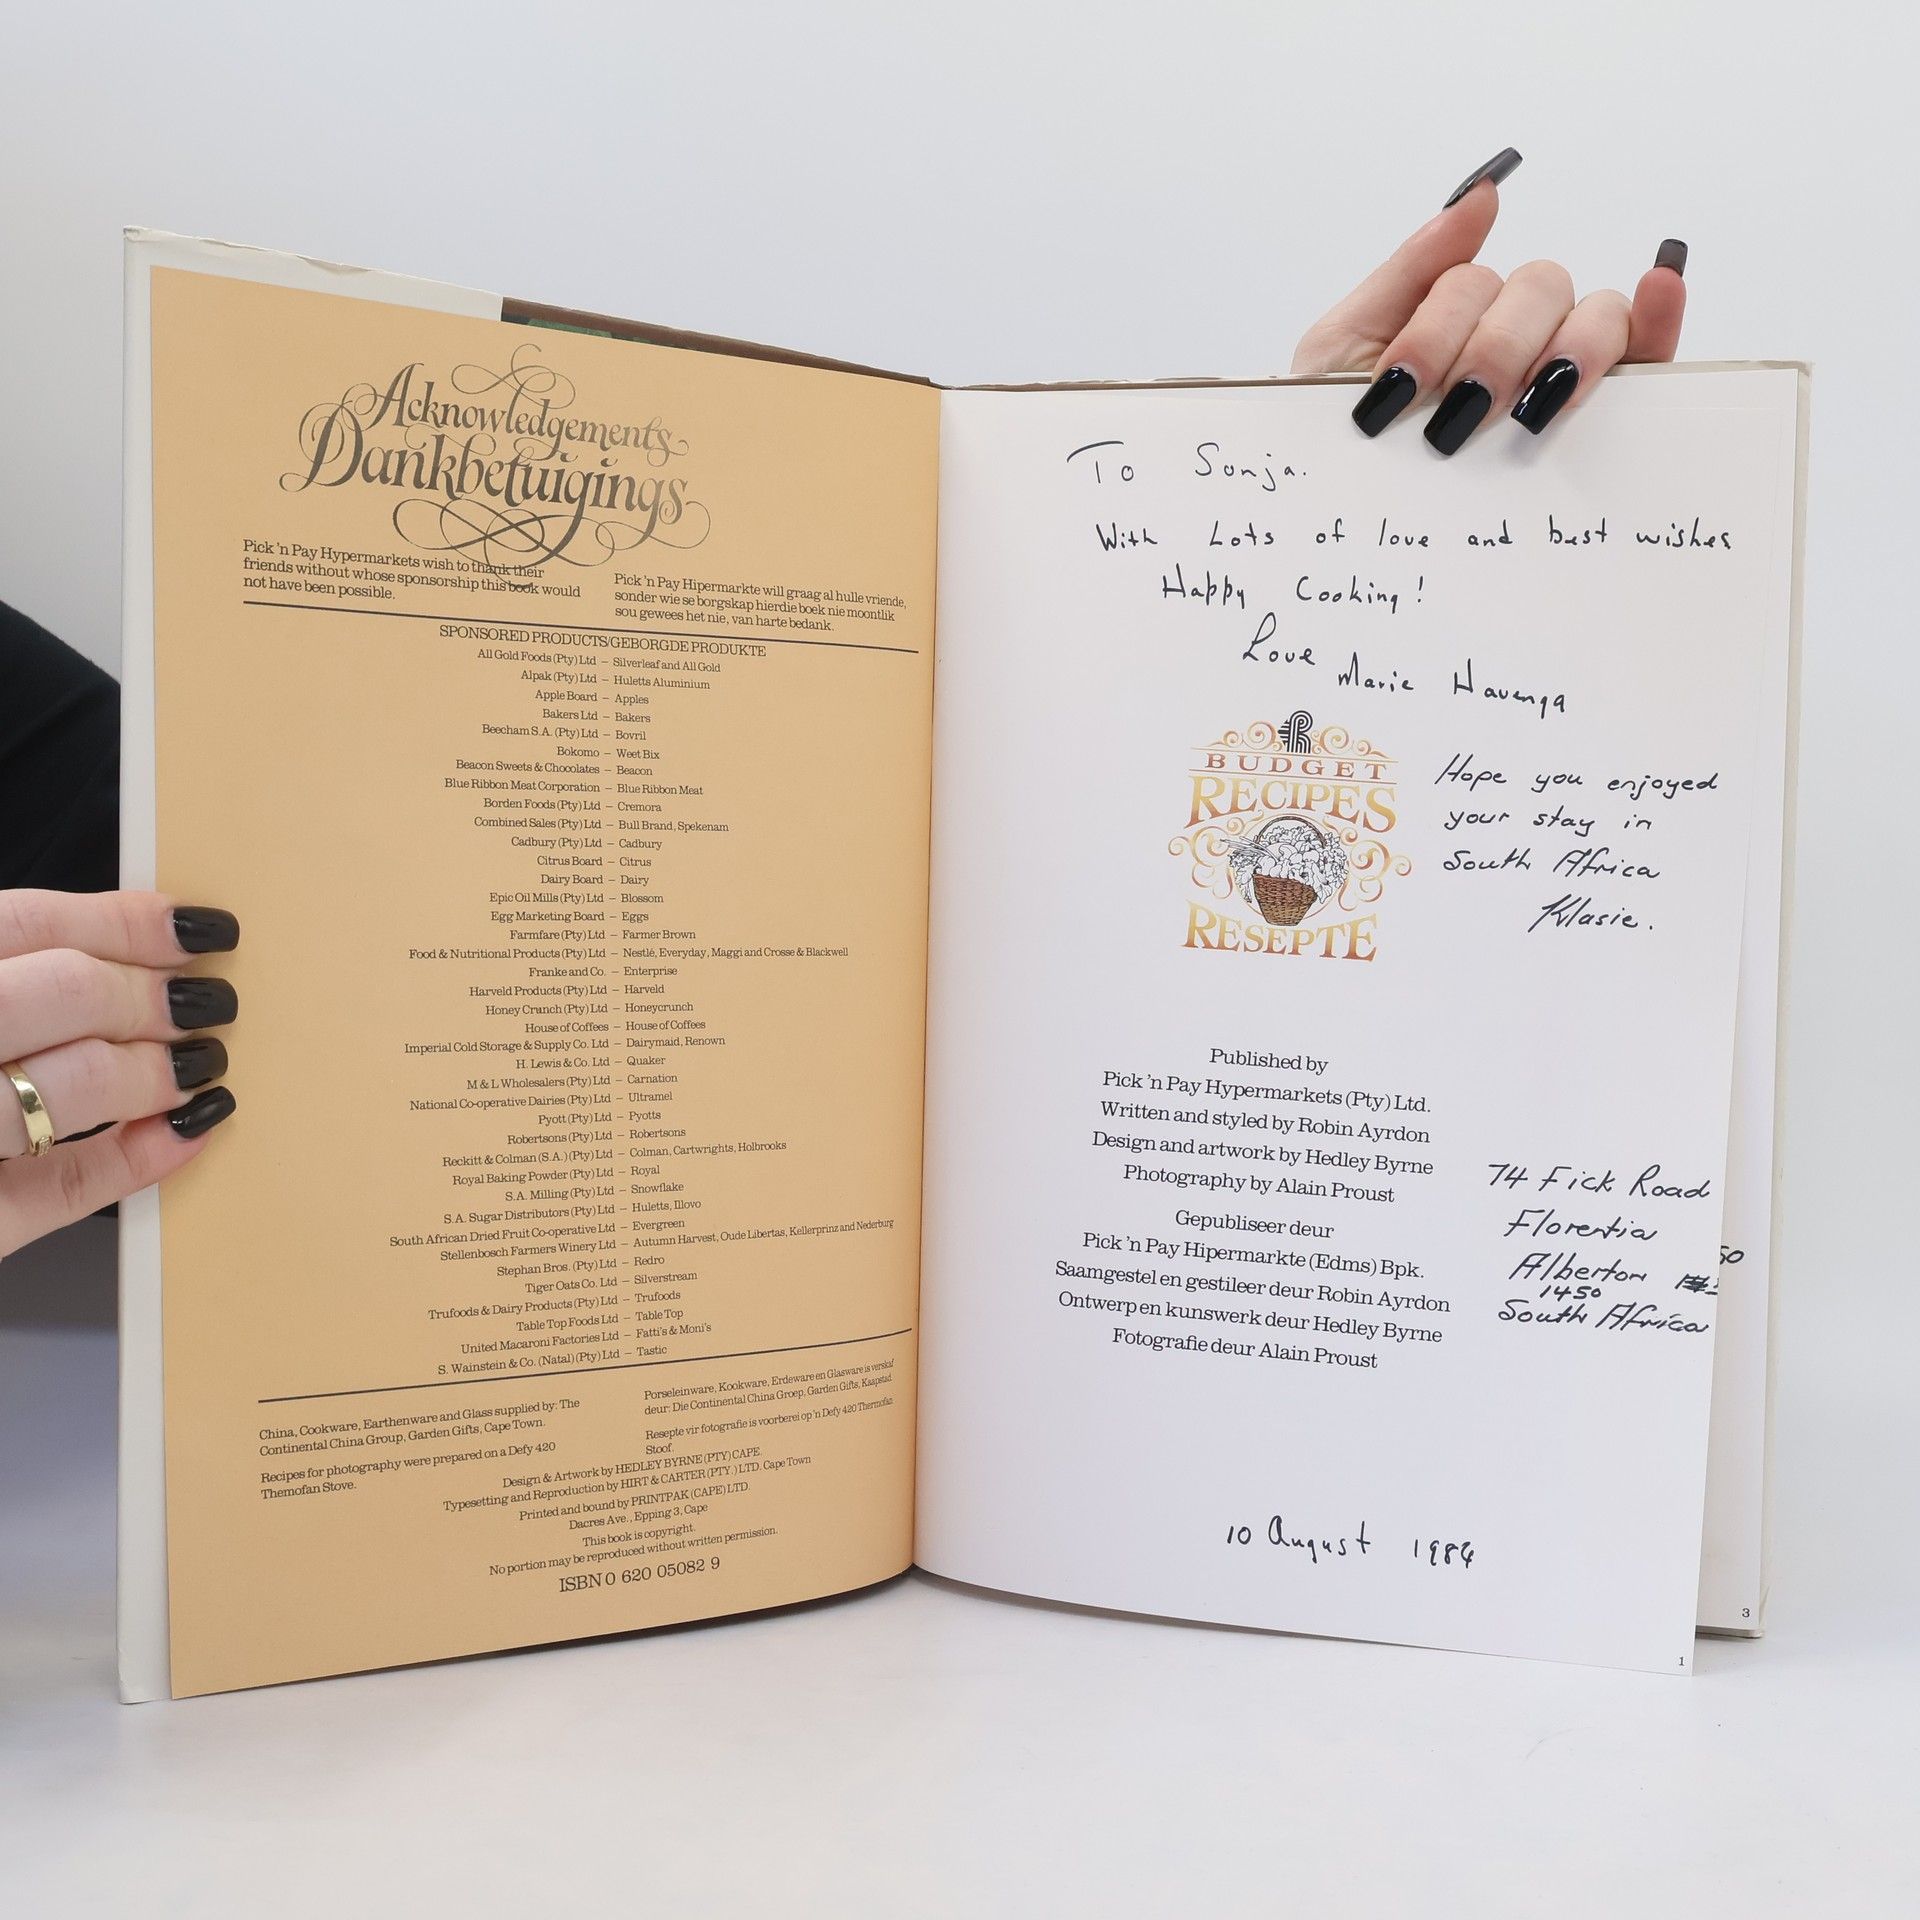 Acknowledgements
Dankbetuigings
Pick 'n Pay Hypermarkets wish to thank their
friends without whose sponsorship this book would
not have been possible.
Pick 'n Pay Hipermarkte will graag al hulle vriende,
sonder wie se borgskap hierdie boek nie moontlik
sou gewees het nie, van harte bedank.
SPONSORED PRODUCTS/GEBORGDE PRODUKTE
All Gold Foods (Pty) Ltd – Silverleaf and All Gold
Alpak (Pty) Ltd – Huletts Aluminium
Apple Board – Apples
Bakers Ltd – Bakers
Beecham S.A. (Pty) Ltd – Bovril
Bokomo – Weet Bix
Beacon Sweets & Chocolates – Beacon
Blue Ribbon Meat Corporation – Blue Ribbon Meat
Borden Foods (Pty) Ltd – Cremora
Combined Sales (Pty) Ltd – Bull Brand, Spekenam
Cadbury (Pty) Ltd – Cadbury
Citrus Board – Citrus
Dairy Board – Dairy
Epic Oil Mills (Pty) Ltd – Blossom
Egg Marketing Board – Eggs
Farmfare (Pty) Ltd – Farmer Brown
Food & Nutritional Products (Pty) Ltd – Nestlé, Everyday, Maggi and Crosse & Blackwell
Franke and Co. – Enterprise
Harveld Products (Pty) Ltd – Harveld
Honey Crunch (Pty) Ltd – Honeycrunch
House of Coffees – House of Coffees
Imperial Cold Storage & Supply Co. Ltd – Dairymaid, Renown
H. Lewis & Co. Ltd – Quaker
M & L Wholesalers (Pty) Ltd – Carnation
National Co-operative Dairies (Pty) Ltd – Ultramel
Pyott (Pty) Ltd – Pyotts
Robertsons (Pty) Ltd – Robertsons
Reckitt & Colman (S.A.) (Pty) Ltd – Colman, Cartwrights, Holbrooks
Royal Baking Powder (Pty) Ltd – Royal
S.A. Milling (Pty) Ltd – Snowflake
S.A. Sugar Distributors (Pty) Ltd – Huletts, Illovo
South African Dried Fruit Co-operative Ltd – Evergreen
Stellenbosch Farmers Winery Ltd – Autumn Harvest, Oude Libertas, Kellerprinz and Nederburg
Stephan Bros. (Pty) Ltd – Redro
Tiger Oats Co. Ltd – Silverstream
Trufoods & Dairy Products (Pty) Ltd – Trufoods
Table Top Foods Ltd – Table Top
United Macaroni Factories Ltd – Fatti's & Moni's
S. Wainstein & Co. (Natal) (Pty) Ltd – Tastic
China, Cookware, Earthenware and Glass supplied by: The
Continental China Group, Garden Gifts, Cape Town.
Recipes for photography were prepared on a Defy 420
Themofan Stove.
Porseleinware, Kookware, Erdeware en Glasware is verskaf
deur: Die Continental China Groep, Garden Gifts, Kaapstad
Resepte vir fotografie is voorberei op 'n Defy 420 Thermofan
Stoof.
Design & Artwork by HEDLEY BYRNE (PTY) CAPE.
Typesetting and Reproduction by HIRT & CARTER (PTY.) LTD. Cape Town
Printed and bound by PRINTPAK (CAPE) LTD.
Dacres Ave., Epping 3, Cape
This book is copyright.
No portion may be reproduced without written permission.
ISBN 0 620 05082 9
To Sonja.
With Lots of love and best wishes
Happy Cooking!
Love
Marie Havenga
BUDGET
RECIPES
RESEPTE
Hope you enjoyed
your stay in
South Africa
Klasie.
Published by
Pick 'n Pay Hypermarkets (Pty) Ltd.
Written and styled by Robin Ayrdon
Design and artwork by Hedley Byrne
Photography by Alain Proust
Gepubliseer deur
Pick 'n Pay Hipermarkte (Edms) Bpk.
Saamgestel en gestileer deur Robin Ayrdon
Ontwerp en kunswerk deur Hedley Byrne
Fotografie deur Alain Proust
74 Fick Road
Florentia
Alberton
1450
South Africa
50
10 August 1984
1
3